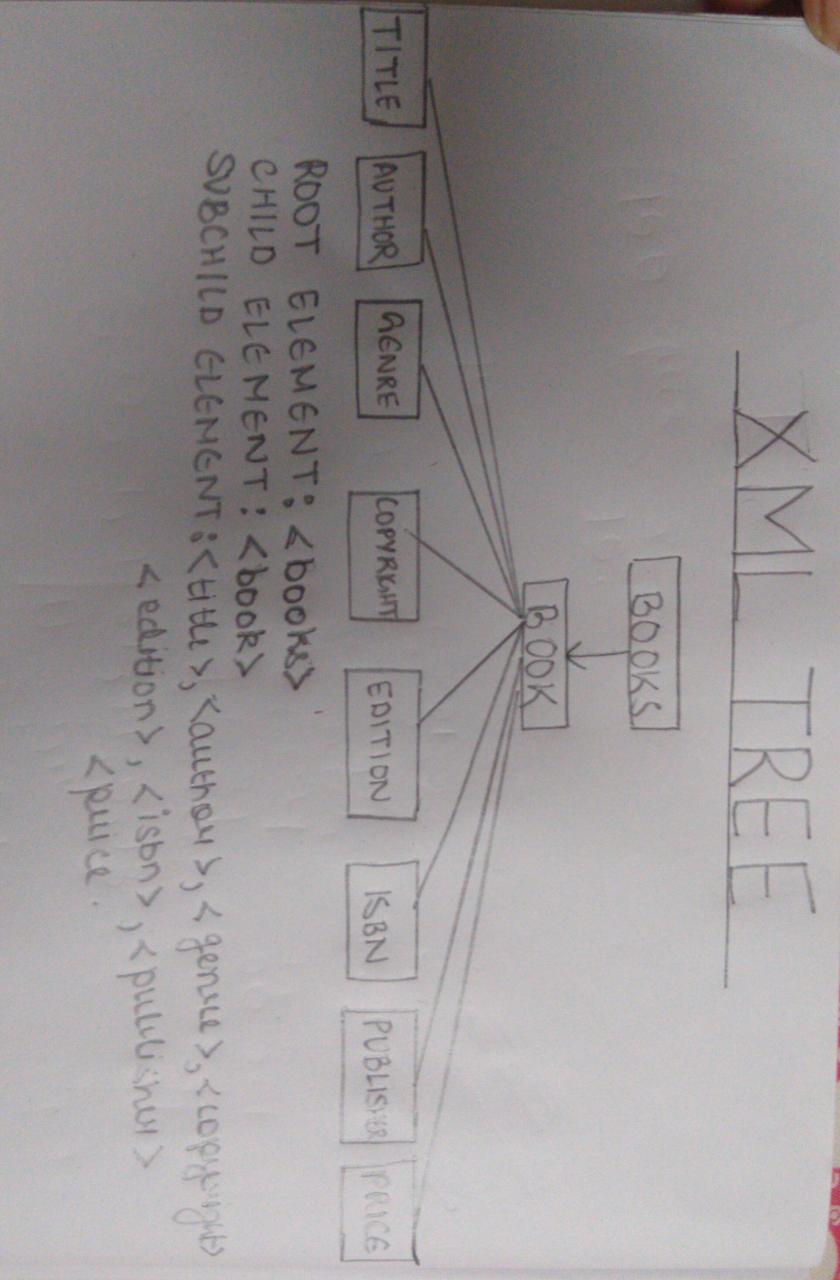 XML TREE
BOOKS
BOOK
TITLE AUTHOR GENRE COPYRIGHT EDITION ISBN PUBLISHER PRICE
ROOT ELEMENT: <books>
CHILD ELEMENT: <book>
SUBCHILD ELEMENT:<title>, <author>, <genre>, <copyright>
<edition>, <isbn>, <publisher>
<price.